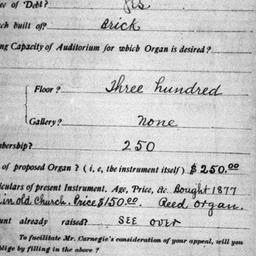 ee of Debt? Yes
ch built of? Brick
ng Capacity of Auditorium for which Organ is desired?
Floor? Three hundred
Gallery? None
bership? 250
of proposed Organ? (i, e, the instrument itself) $250.00
iculars of present Instrument. Age, Price, &c. Bought 1877
in old Church. Price $150.00. Reed organ.
unt already raised? SEE OVER
To facilitate Mr. Carnegie's consideration of your appeal, will you
blige by filling in the above?